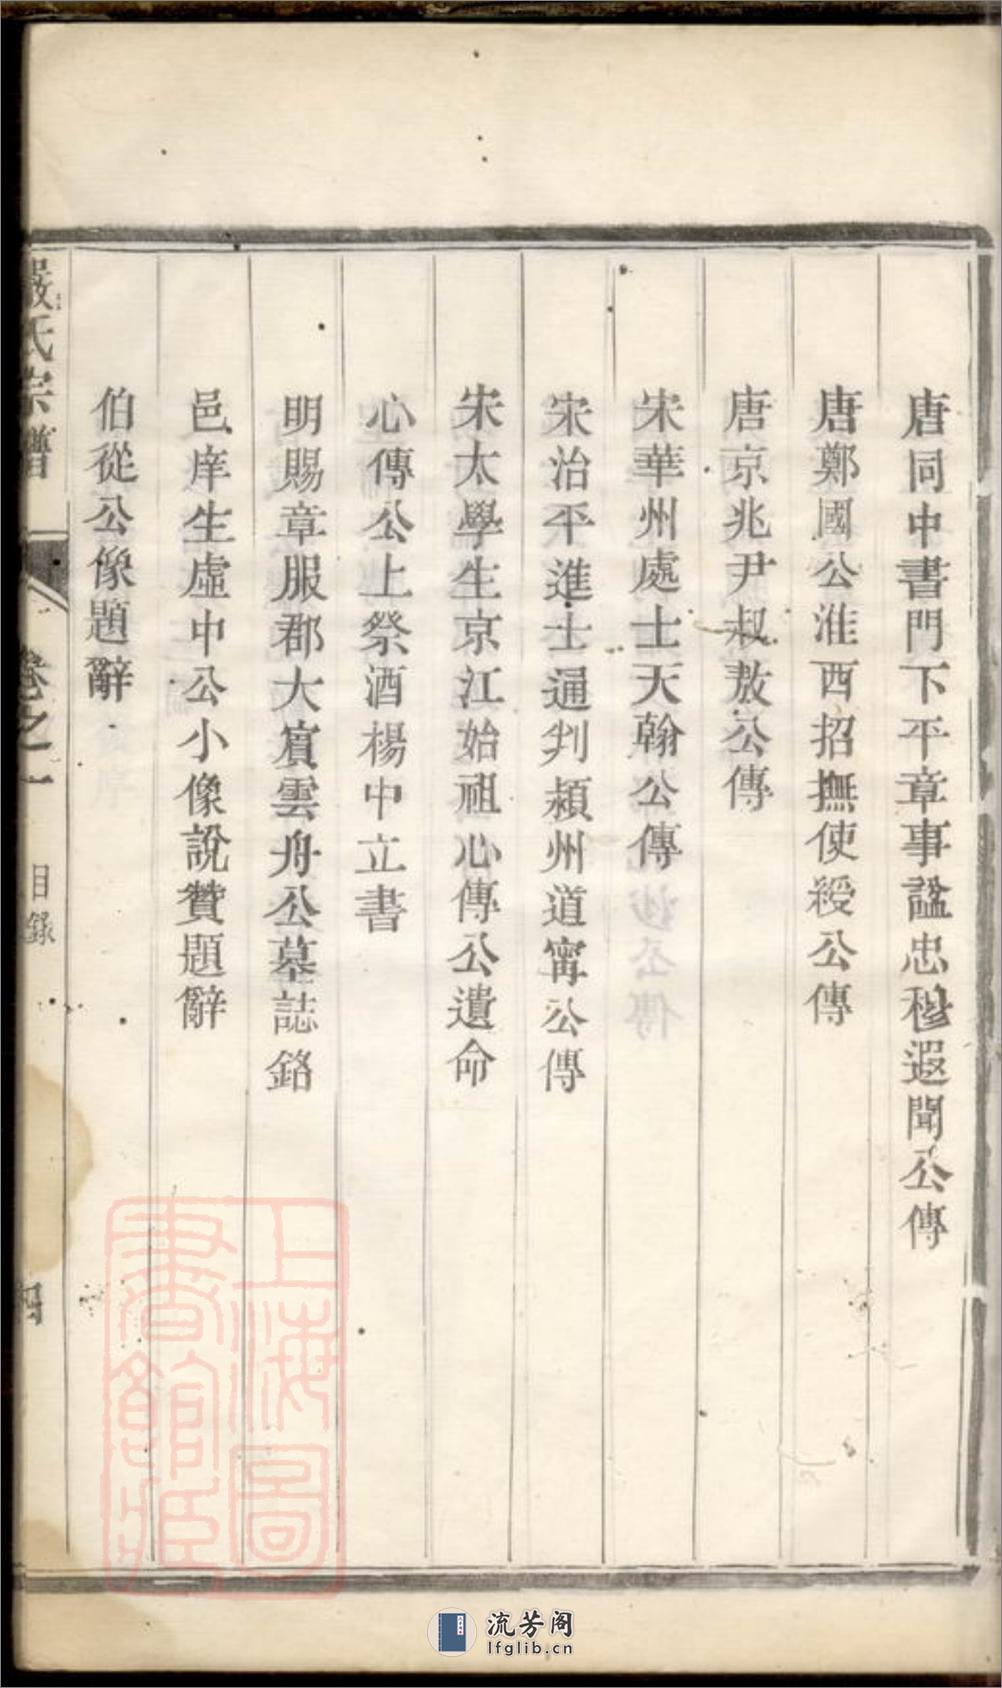 唐同中書門下平章事諡忠穆遐聞公傳
唐鄭國公淮西招撫使綬公傳
唐京兆尹叔敖公傳
宋華州處士天翰公傳
宋治平進士通判潁州道甯公傳
宋太學生京江始祖心傳公遺命
心傳公上祭酒楊中立書
明賜章服郡大賔雲舟公墓誌銘
邑庠生虛中公小像說贊題辭
伯從公像題辭
嚴氏宗譜
卷之一
目錄
四
上海圖書館藏
流芳阁
lfglib.cn